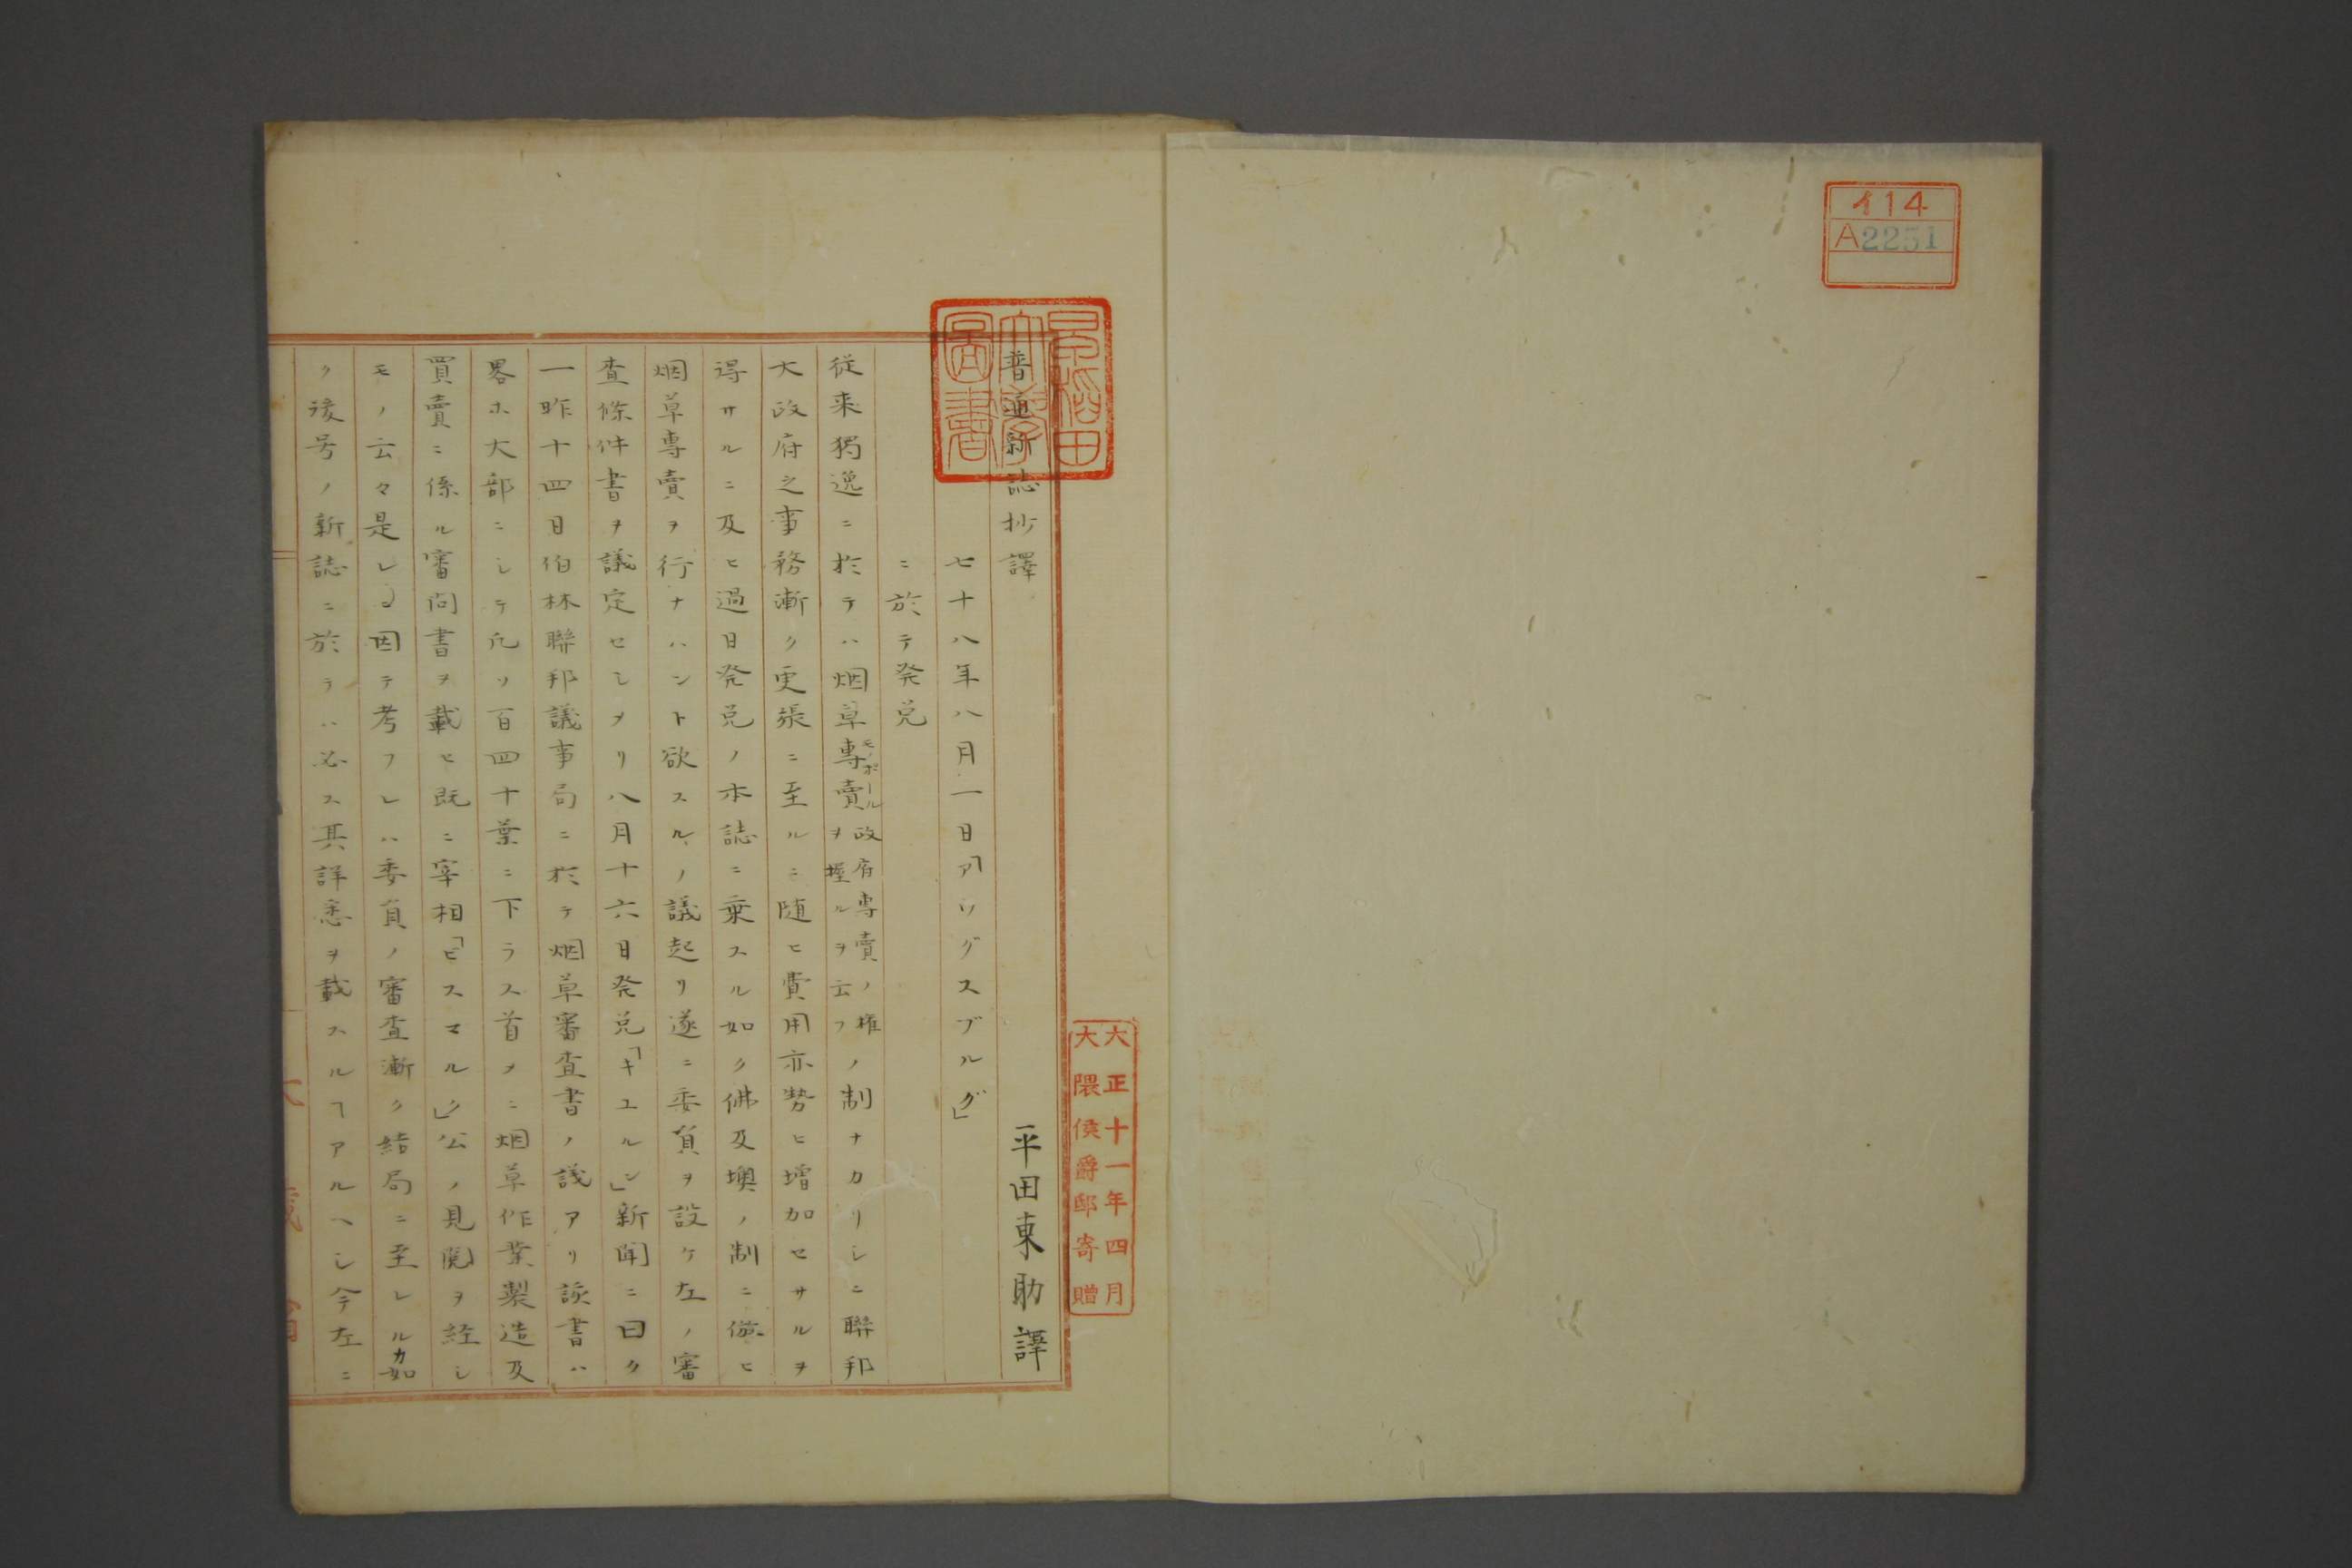 イ14
A2251
早稲田大学図書
大正十一年四月
大隈侯爵邸寄贈
普通新誌抄譯
平田東助譯
七十八年八月一日「アウグスブルグ」
ニ於テ発兌
従来獨逸ニ於テハ烟草専賣モノポール政府専賣ノ権ヲ握ルヲ云フノ制ナカリシニ聯邦
大政府之事務漸ク更張ニ至ルニ随ヒ費用亦勢ヒ増加セサルヲ
得サルニ及ヒ過日発兌ノ本誌ニ乗スル如ク佛及墺ノ制ニ倣ヒ
烟草専賣ヲ行ナハント欲スルノ議起リ遂ニ委員ヲ設ケ左ノ審
査條件書ヲ議定セシメリ八月十六日発兌「キユルン」新聞ニ曰ク
一昨十四日伯林聯邦議事局ニ於テ烟草審査書ノ議アリ該書ハ
畧ホ大部ニシテ凡ソ百四十葉ニ下ラス首メニ烟草作業製造及
買賣ニ係ル審問書ヲ載セ既ニ宰相「ビスマルク」公ノ見閲ヲ経シ
モノ云々是レ因テ考フレハ委員ノ審査漸ク結局ニ至レルカ如
ク後号ノ新誌ニ於テハ必ス其詳悉ヲ載スルヿアルヘシ今左ニ